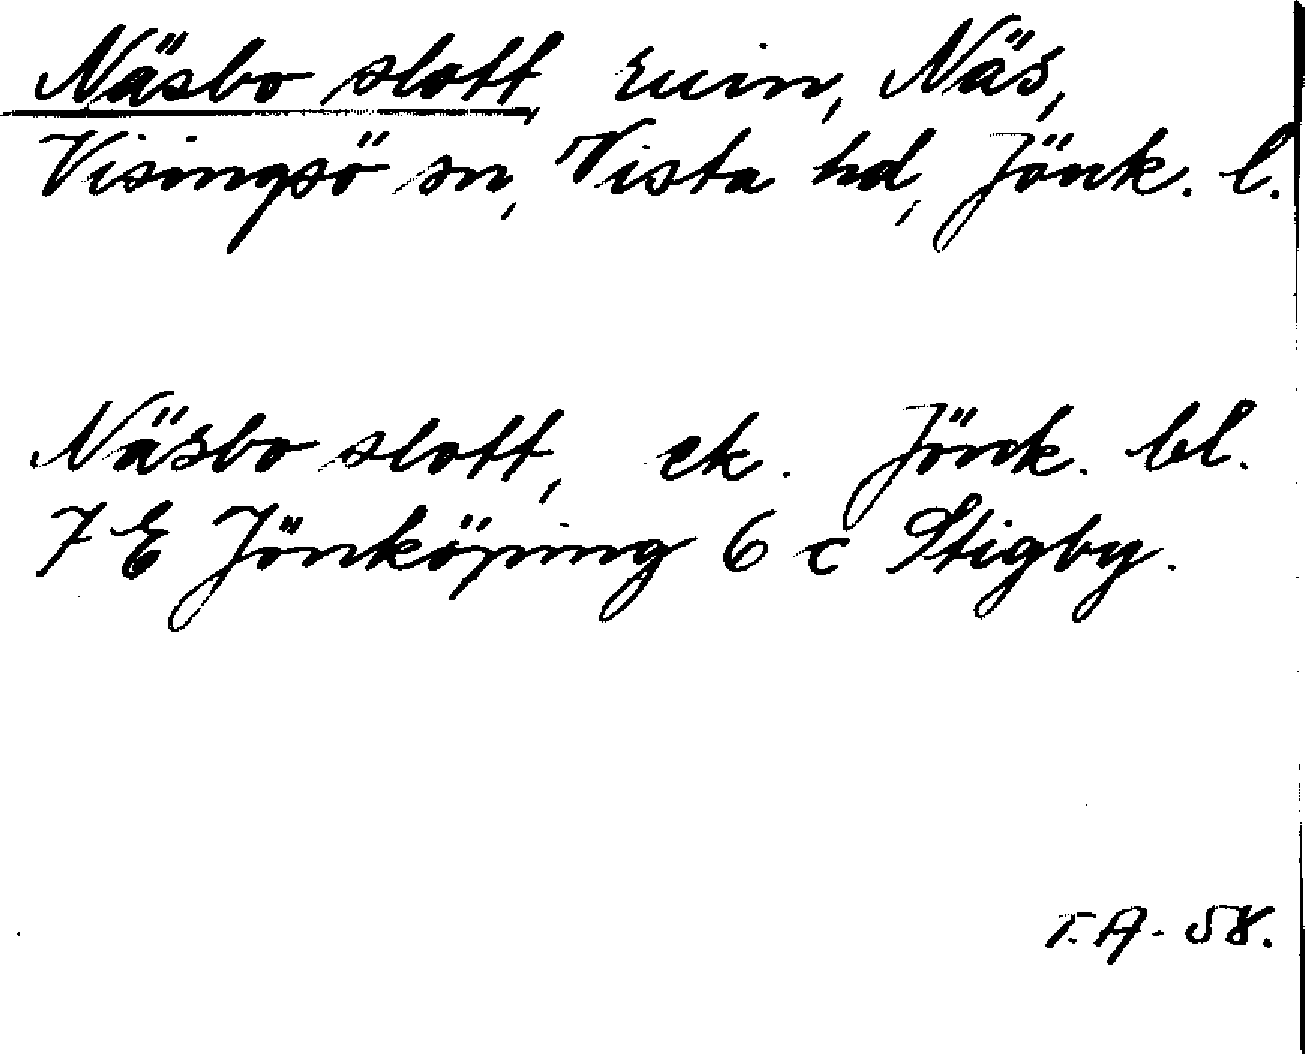 Näsbo slott, ruin, Näs,
Visingsö sn, Vista hd, Jönk. l.
Näsbo slott, ek. Jönk. bl.
7 E Jönköping 6 c Stigby.
T.A. 58.